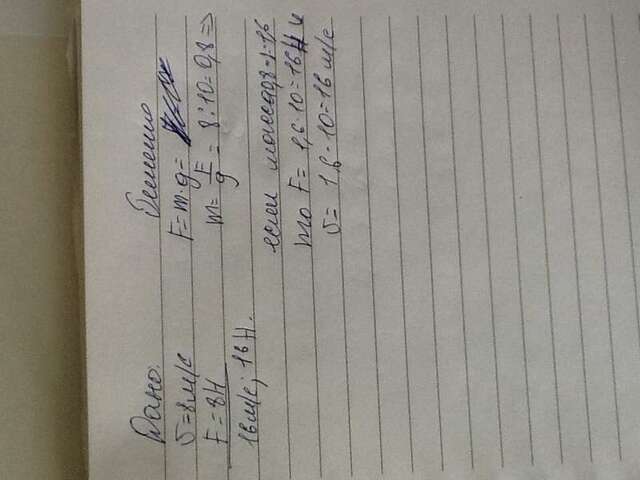 Дано:
υ=8м/с
F=8H
16м/с; 16H.
Решение
F=m·g=
m= F/g = 8:10=0,8 =>
если масса
то F= 1,6·10=16H и
υ= 1,6·10=16м/с